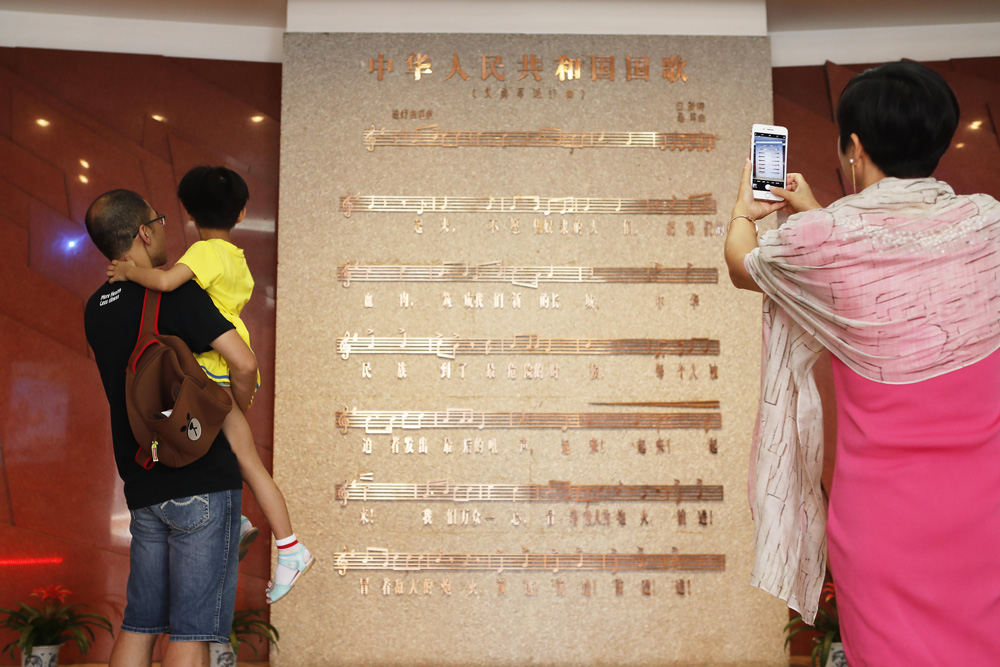 中华人民共和国国歌
(义勇军进行曲)
进行曲速度
田汉 词
聂耳 曲
起来, 不愿做奴隶的人们, 把我们的
血肉, 筑成我们新的长城, 中华
民族 到了 最危险的时候, 每个人被
迫着发出 最后的吼声, 起来! 起来! 起
来! 我们万众一心, 冒着敌人的炮火 前进!
冒着敌人的炮火 前进! 前进! 前进! 进!
More Beats
Less Beasts